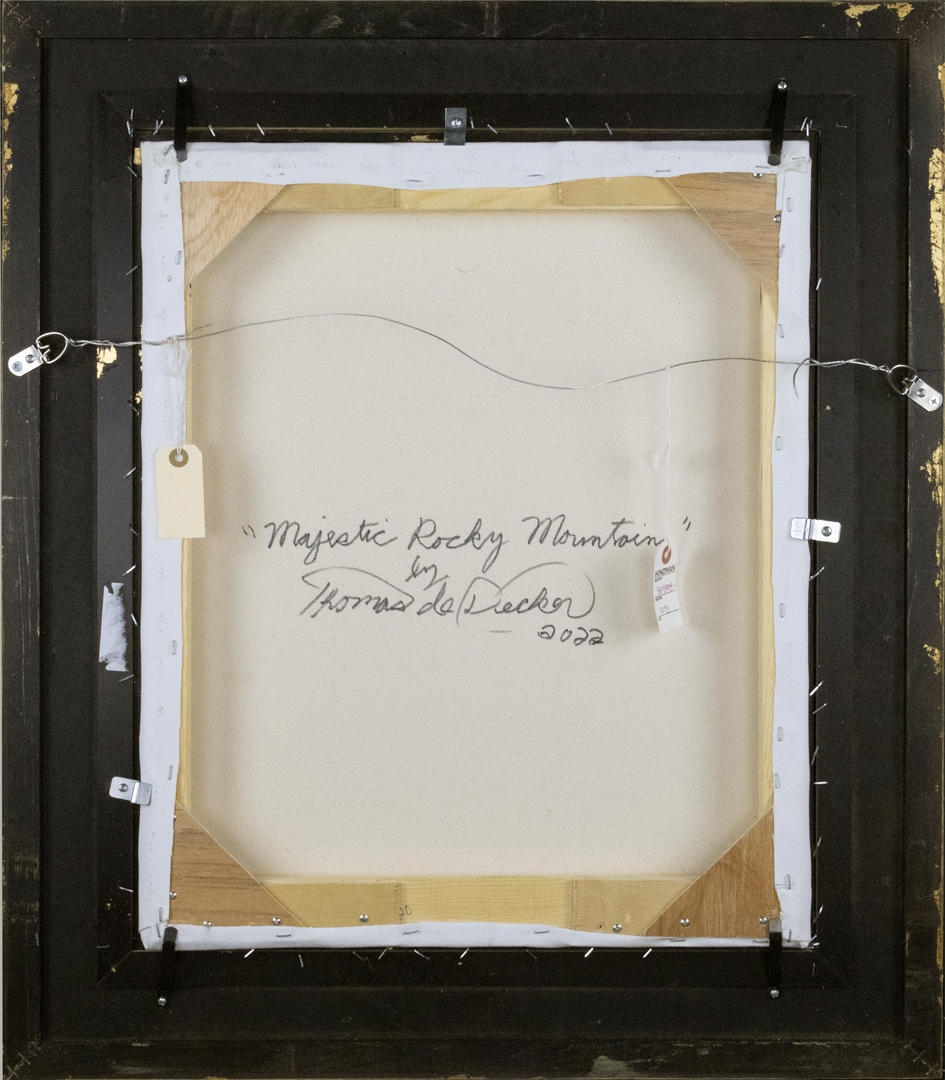 "Majestic Rocky Mountain"
by
Thomas de Decker
2022
HINDMAN
20